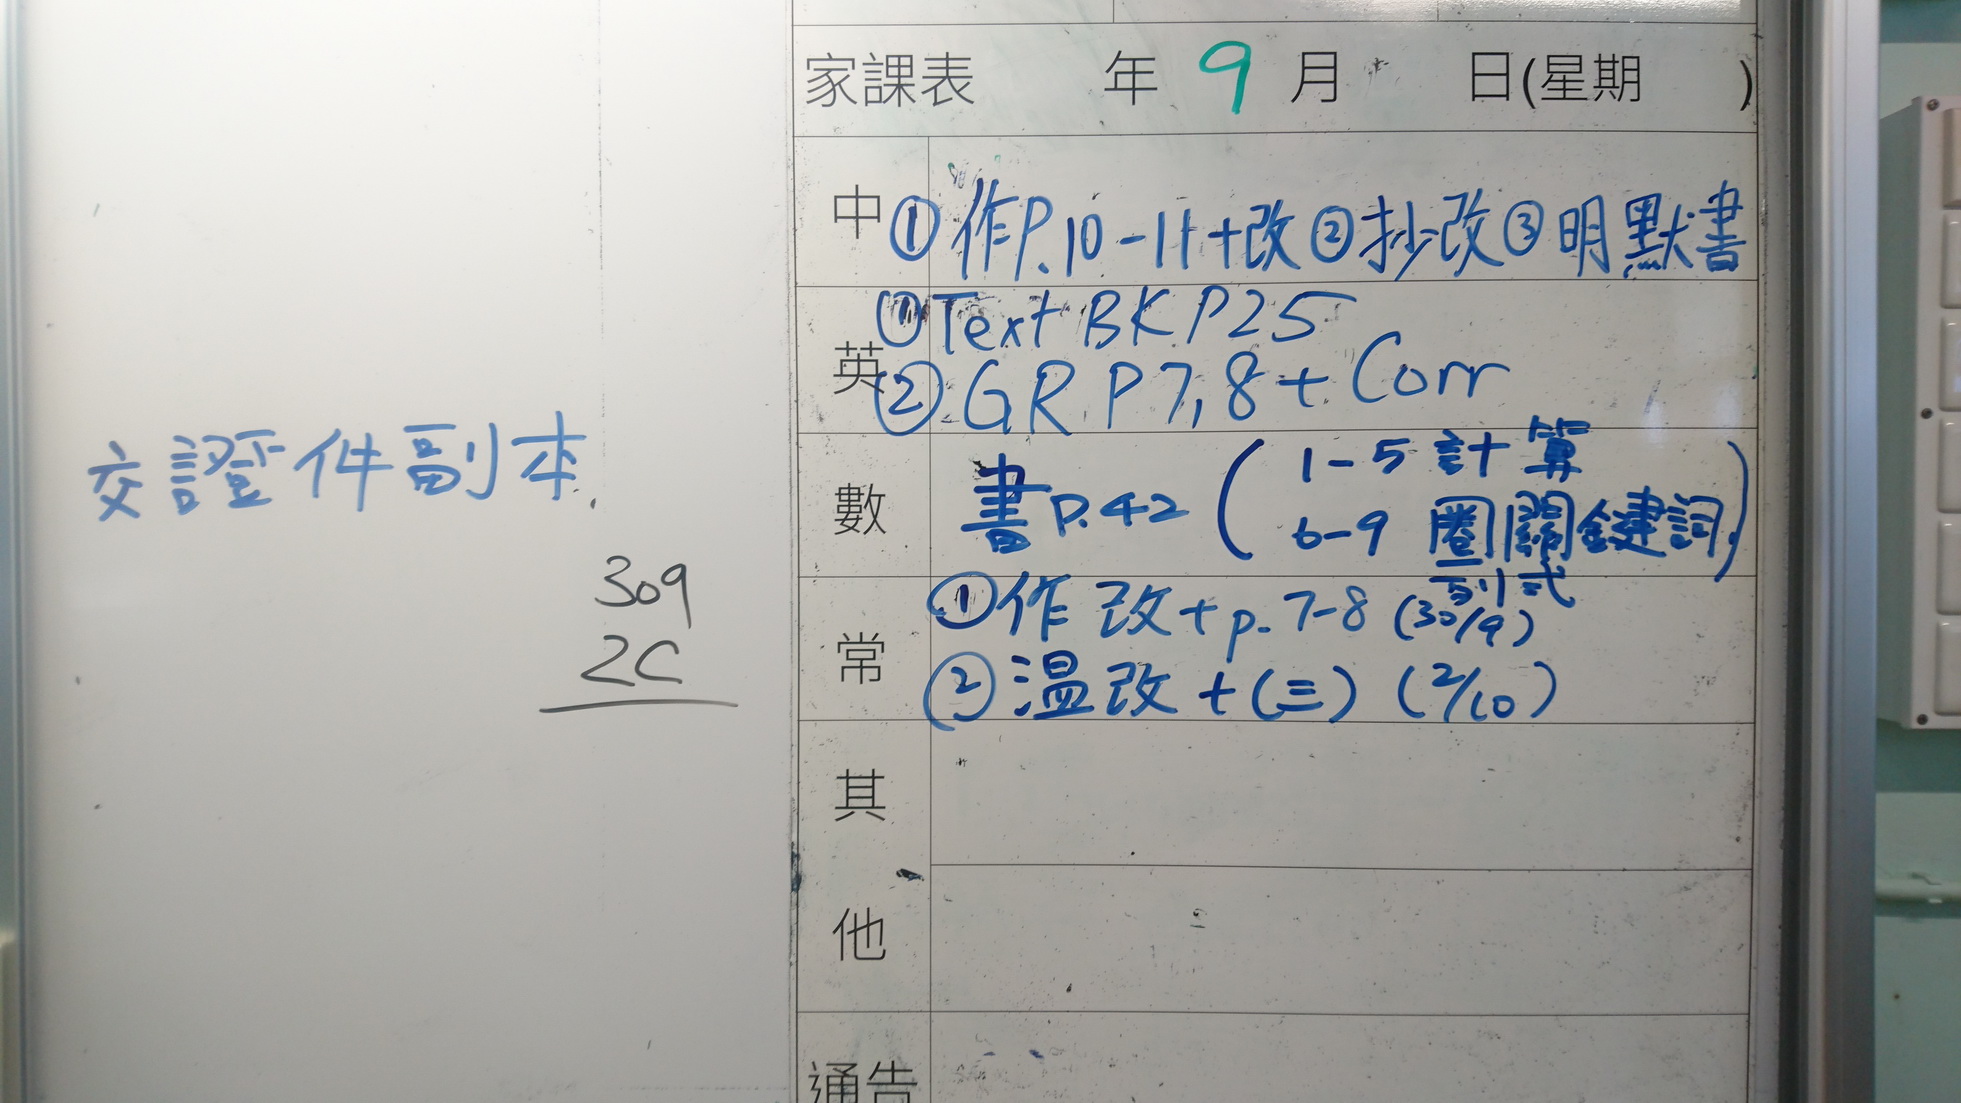 交證件副本
309
2C
家課表 年 9 月 日(星期 )
中 ①作P.10-11+改②抄改③明默書
英
①Text BK P25
②GR P7,8+Corr
數 書P.42
(1-5 計算
6-9 圈關鍵詞)
列式
常
①作改+p.7-8 (30/9)
②溫改+(三) (2/10)
其
他
通告